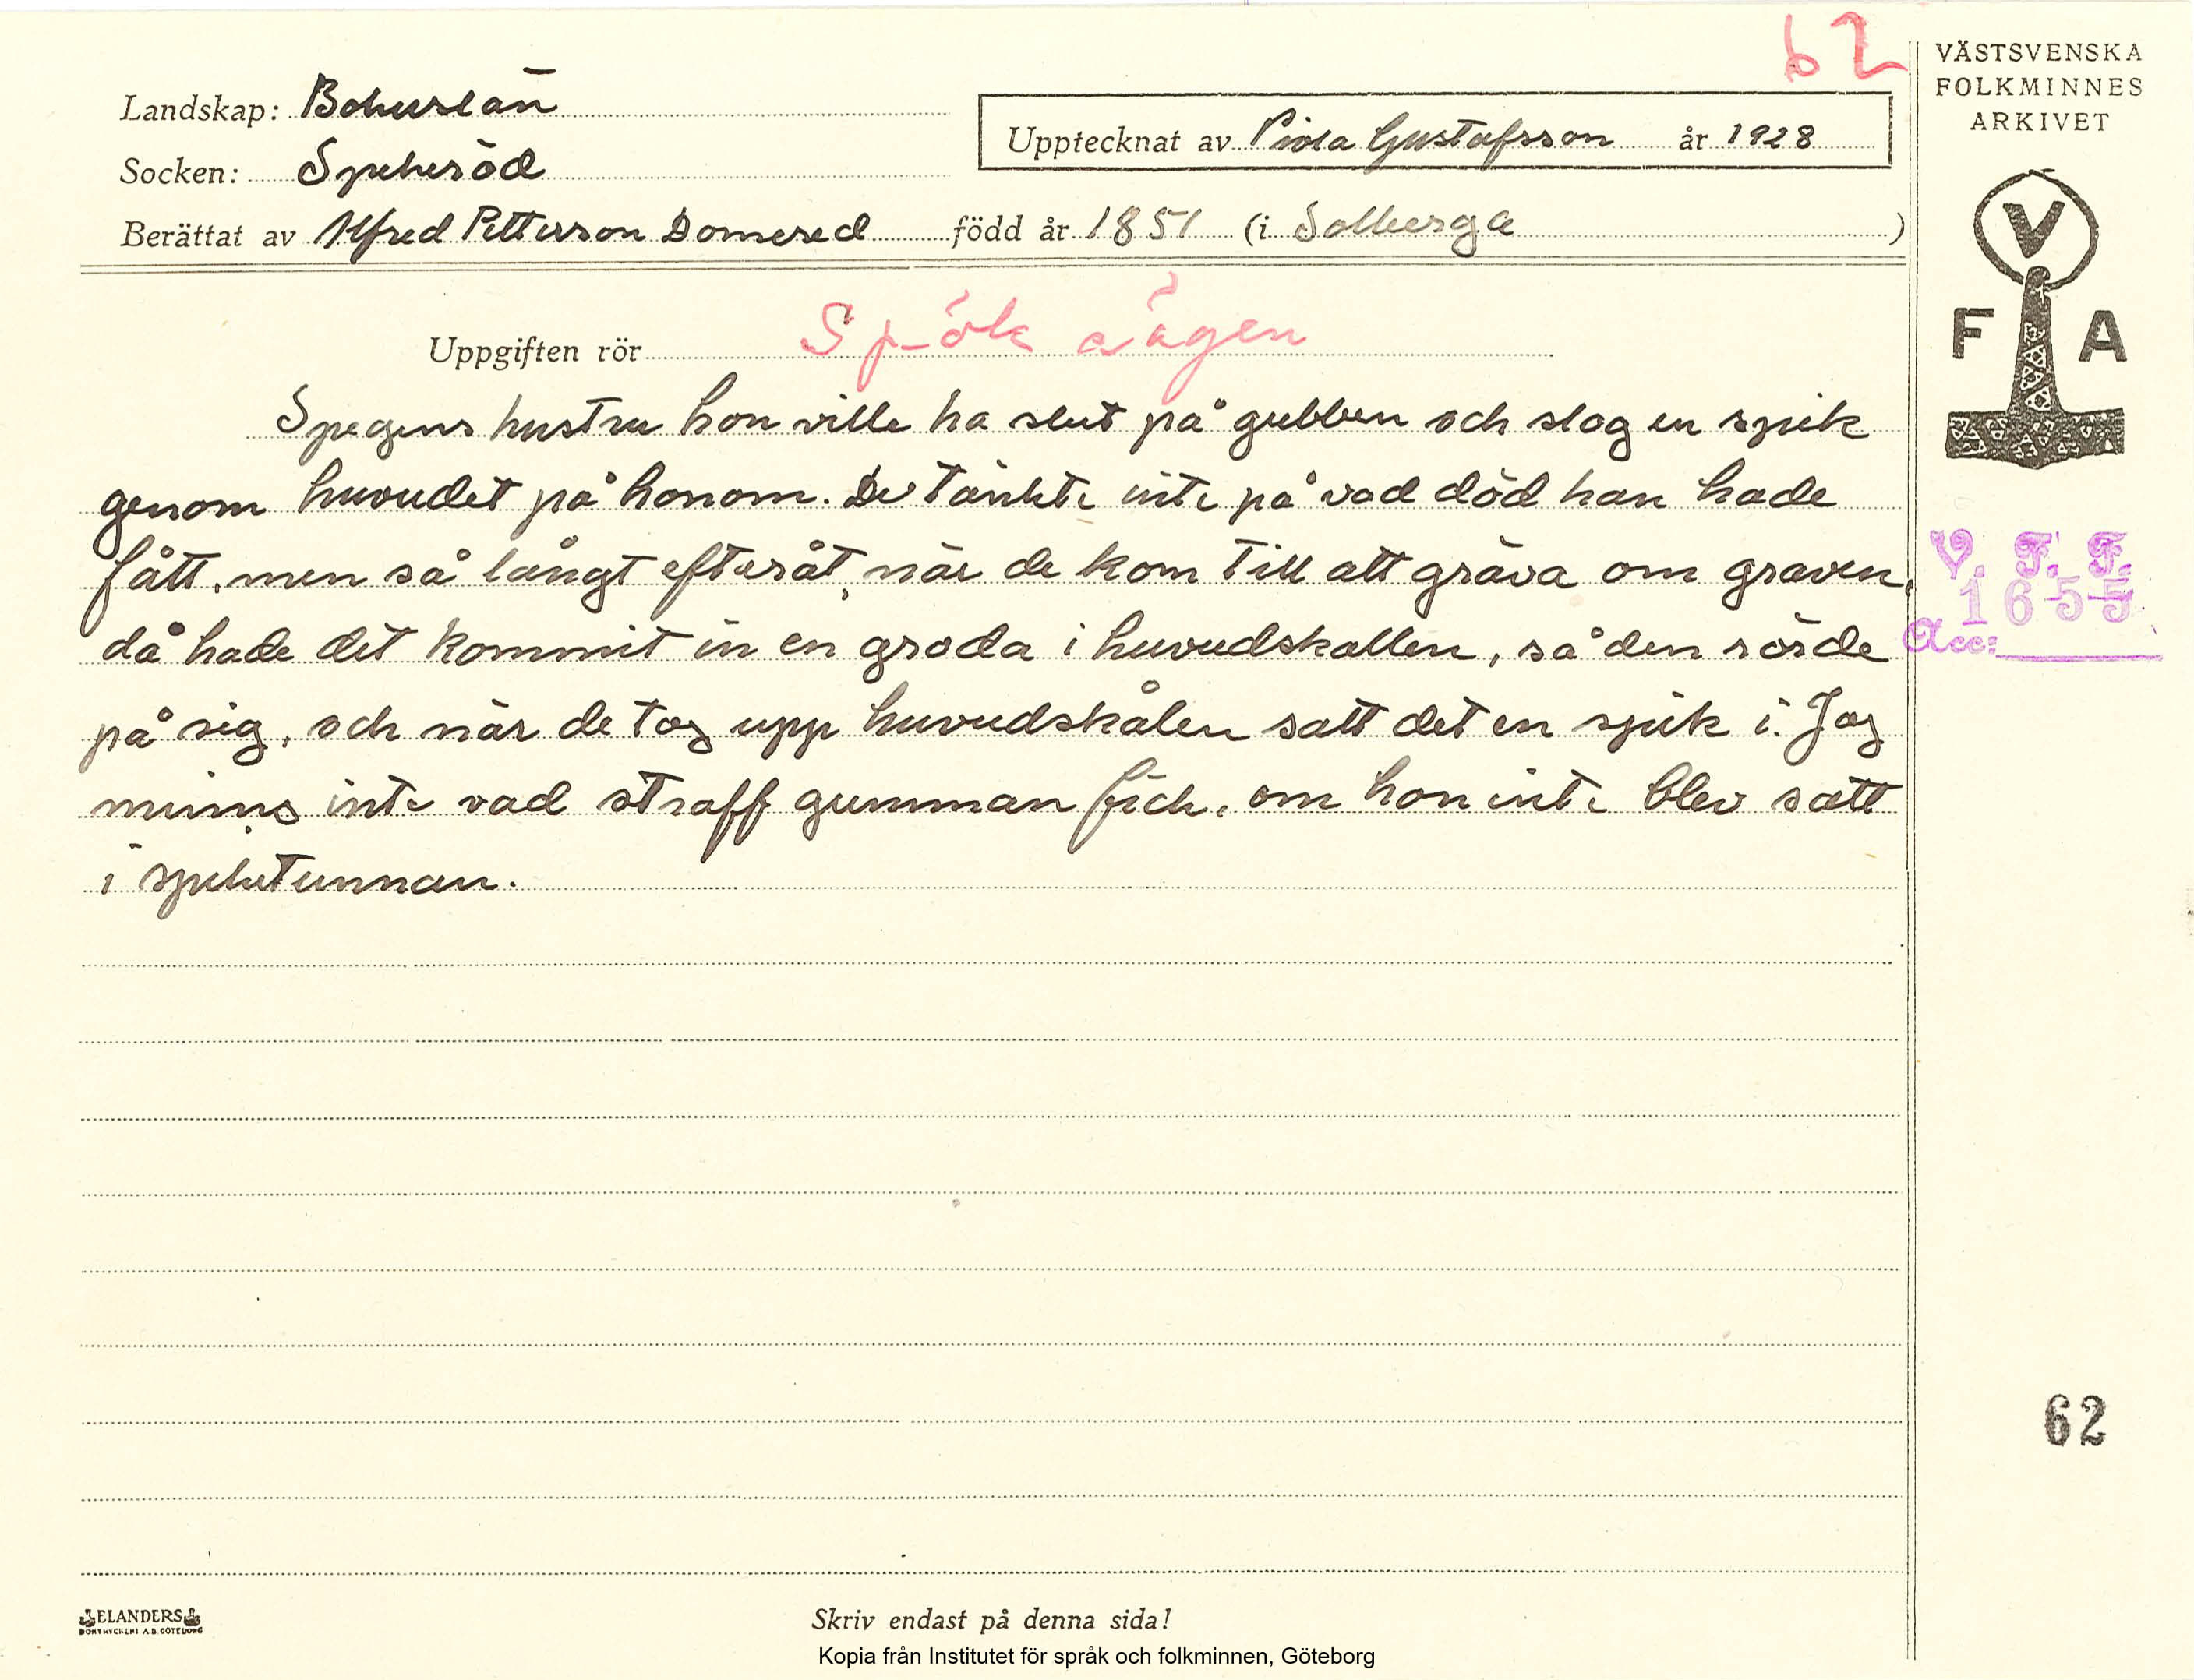 62
VÄSTSVENSKA
FOLKMINNES
ARKIVET
Landskap: Bohuslän
Upptecknat av Viola Gustafsson år 1928
Socken: Spekeröd
Berättat av Alfred Pettersson Domered född år 1851 (i Solberga )
V
F A
Uppgiften rör Spöksägen
Spegens hustru hon ville ha slut på gubben och slog en spik
genom huvudet på honom. De tänkte inte på vad död han hade
fått, men så långt efteråt, när de kom till att gräva om graven,
då hade det kommit in en groda i huvudskallen, så den rörde
på sig, och när de tog upp huvudskålen satt det en spik i. Jag
minns inte vad straff gumman fick, om hon inte blev satt
i spiketunnan.
V. F. F.
1655
Acc:
62
ELANDERS
BOKTRYCKERI A.B. GÖTEBORG
Skriv endast på denna sida!
Kopia från Institutet för språk och folkminnen, Göteborg